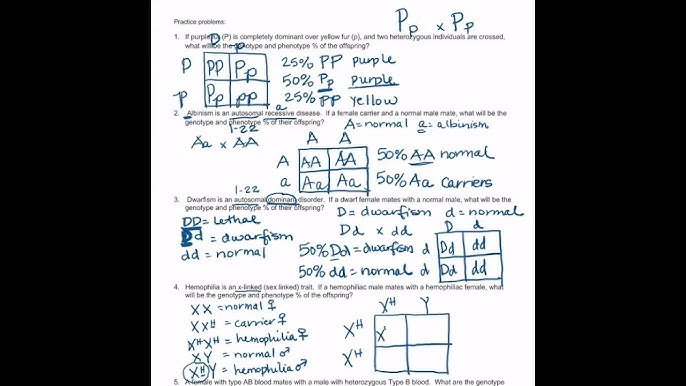 Practice problems:
Pp x Pp
1. If purple fur (P) is completely dominant over yellow fur (p), and two heterozygous individuals are crossed,
what will be the genotype and phenotype % of the offspring?
P p
P PP Pp 25% PP purple
50% Pp purple
p Pp pp 25% PP yellow
a
2. Albinism is an autosomal recessive disease. If a female carrier and a normal male mate, what will be the
genotype and phenotype % of their offspring? A=normal a=albinism
1-22
Aa x AA
A A
A AA AA 50% AA normal
a Aa Aa 50% Aa carriers
1-22
3. Dwarfism is an autosomal dominant disorder. If a dwarf female mates with a normal male, what will be the
genotype and phenotype % of their offspring?
DD=lethal D=dwarfism d=normal
Dd=dwarfism Dd x dd
dd=normal
D d
50% Dd=dwarfism d Dd dd
50% dd=normal d Dd dd
4. Hemophilia is an x-linked (sex linked) trait. If a hemophiliac male mates with a hemophiliac female, what
will be the genotype and phenotype % of the offspring?
XX=normal ♀
XXᴴ=carrier ♀
XᴴXᴴ=hemophilia ♀
XY=normal ♂
XᴴY=hemophilia ♂
Xᴴ Y
Xᴴ X
Xᴴ
5. A female with type AB blood mates with a male with heterozygous Type B blood. What are the genotype